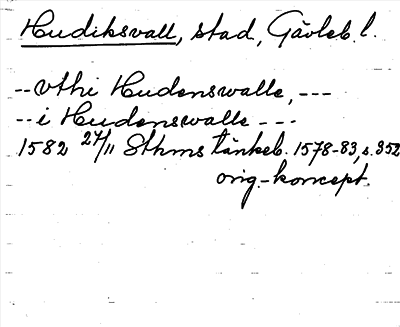 Hudiksvall, stad, Gävleb. l.
-- vthi Hudenswalle, ---
-- i Hudenswalle ---
1582 27/11 Sthms tänkeb. 1578-83, s. 352
orig.-koncept.